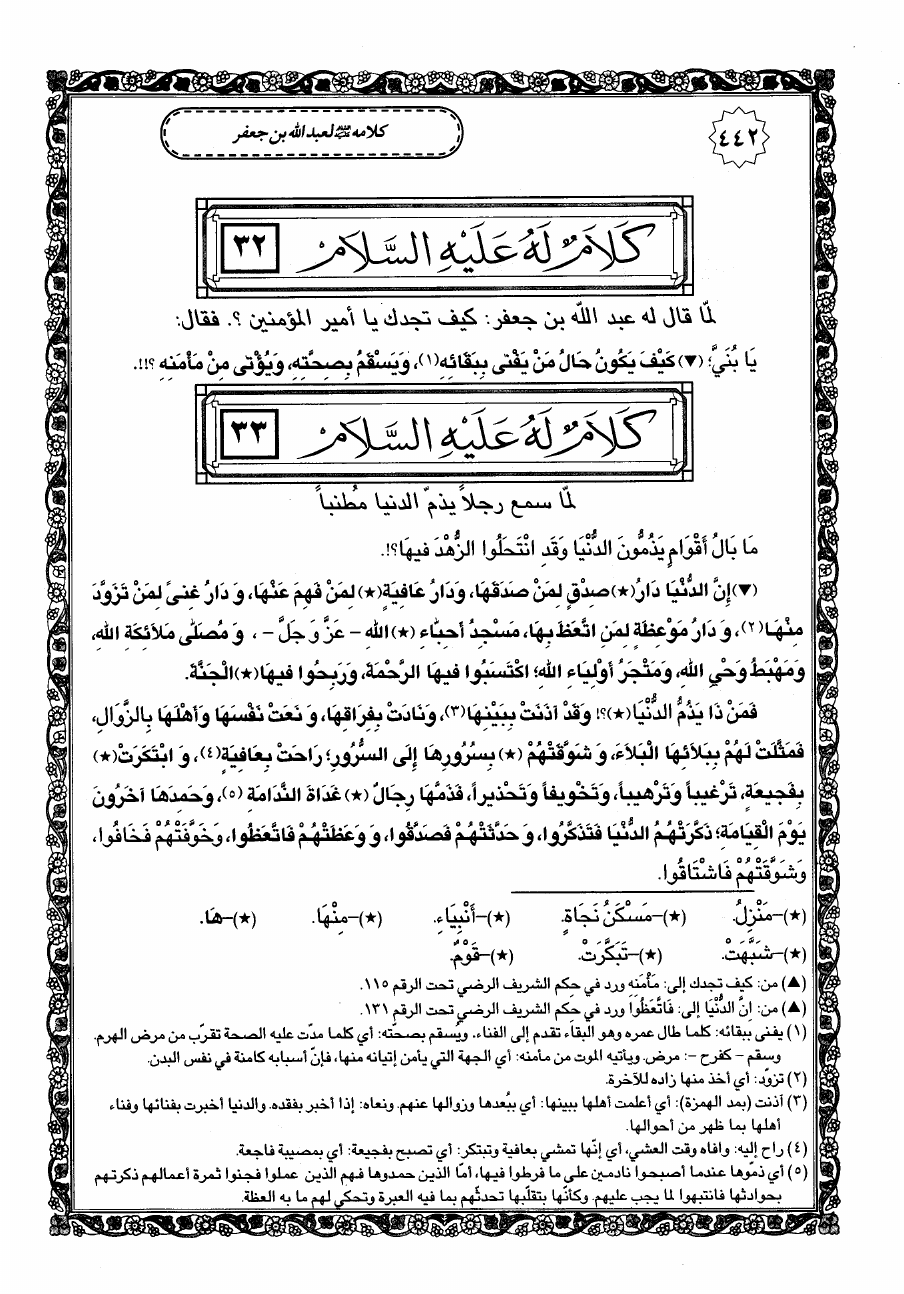 ٤٤٢
كلامه عليه السلام لعبد الله بن جعفر
كَلَامٌ لَهُ عَلَيْهِ السَّلَامُ
٣٢
لمّا قال له عبد اللّه بن جعفر: كيف تجدك يا أمير المؤمنين ؟. فقال:
يَا بُنَيَّ؛ (▼) كَيْفَ يَكُونُ حَالُ مَنْ يَفْنى بِبَقَائِهِ(١)، وَيَسْقَمُ بِصِحَّتِهِ، وَيُؤْتى مِنْ مَأْمَنِهِ ؟!!.
كَلَامٌ لَهُ عَلَيْهِ السَّلَامُ
٣٣
لمّا سمع رجلاً يذمّ الدنيا مُطنباً
مَا بَالُ أَقْوَامٍ يَذُمُّونَ الدُّنْيَا وَقَدِ انْتَحَلُوا الزُّهْدَ فيهَا؟!.
(▼)إِنَّ الدُّنْيَا دَارُ(★)صِدْقٍ لِمَنْ صَدَقَهَا، وَدَارُ عَافِيَةٍ(★) لِمَنْ فَهِمَ عَنْهَا، وَ دَارُ غِنىً لِمَنْ تَزَوَّدَ
مِنْهَا(٢)، وَ دَارُ مَوْعِظَةٍ لِمَنِ اتَّعَظَ بِهَا، مَسْجِدُ أَحِبَّاءِ (★)اللهِ - عَزَّ وَ جَلَّ - ، وَ مُصَلّى مَلَائِكَةِ اللهِ،
وَمَهْبَطُ وَحْيِ اللهِ، وَمَتْجَرُ أَوْلِيَاءِ اللهِ؛ اكْتَسَبُوا فيهَا الرَّحْمَةَ، وَرَبِحُوا فيهَا(★)الْجَنَّةَ.
فَمَنْ ذَا يَذُمُّ الدُّنْيَا(★)؟! وَقَدْ آذَنَتْ بِبَيْنِهَا(٣)، وَنَادَتْ بِفِرَاقِهَا، وَ نَعَتْ نَفْسَهَا وَأَهْلَهَا بِالزَّوَالِ،
فَمَثَّلَتْ لَهُمْ بِبَلَائِهَا الْبَلَاءَ، وَ شَوَّقَتْهُمْ (★) بِسُرُورِهَا إِلَى السُّرُورِ؛ رَاحَتْ بِعَافِيَةٍ(٤)، وَ ابْتَكَرَتْ(★)
بِفَجيعَةٍ، تَرْغيباً وَتَرْهيباً، وَتَخْويفاً وَتَحْذيراً، فَذَمَّهَا رِجَالٌ (★) غَدَاةَ النَّدَامَةِ (٥)، وَحَمِدَهَا آخَرُونَ
يَوْمَ الْقِيَامَةِ؛ ذَكَّرَتْهُمُ الدُّنْيَا فَتَذَكَّرُوا، وَ حَدَّثَتْهُمْ فَصَدَّقُوا، وَ وَعَظَتْهُمْ فَاتَّعَظُوا، وَخَوَّفَتْهُمْ فَخَافُوا،
وَشَوَّقَتْهُمْ فَاشْتَاقُوا.
(★)-مَنْزِلُ. (★)-مَسْكَنُ نَجَاةٍ. (★)-أَنْبِيَاءِ. (★)-مِنْهَا. (★)-هَا.
(★)-شَبَّهَتْ. (★)-تَبَكَّرَتْ. (★)-قَوْمٌ.
(▲) من: كيف تجدك إلى: مَأْمَنه ورد في حكم الشريف الرضي تحت الرقم ١١٥.
(▲) من: إِنَّ الدُّنْيَا إلى: فَاتَّعَظُوا ورد في حكم الشريف الرضي تحت الرقم ١٣١.
(١) يفنى ببقائه: كلما طال عمره وهو البقاء تقدم إلى الفناء. ويُسقم بصحّته: أي كلما مدّت عليه الصحة تقرّب من مرض الهرم.
وسقم - كفرح -: مرض. ويأتيه الموت من مأمنه: أي الجهة التي يأمن إتيانه منها، فإنّ أسبابه كامنة في نفس البدن.
(٢) تزوّد: أي أخذ منها زاده للآخرة.
(٣) آذنت (بمد الهمزة): أي أعلمت أهلها ببينها: أي ببُعدها وزوالها عنهم. ونعاه: إذا أخبر بفقده. والدنيا أخبرت بفنائها وفناء
أهلها بما ظهر من أحوالها.
(٤) راح إليه: وافاه وقت العشي، أي إنّها تمشي بعافية وتبتكر: أي تصبح بفجيعة: أي بمصيبة فاجعة.
(٥) أي ذمّوها عندما أصبحوا نادمين على ما فرطوا فيها، أمّا الذين حمدوها فهم الذين عملوا فجنوا ثمرة أعمالهم ذكرتهم
بحوادثها فانتبهوا لما يجب عليهم. وكأنّها بتقلّبها تحدثّهم بما فيه العبرة وتحكي لهم ما به العظة.